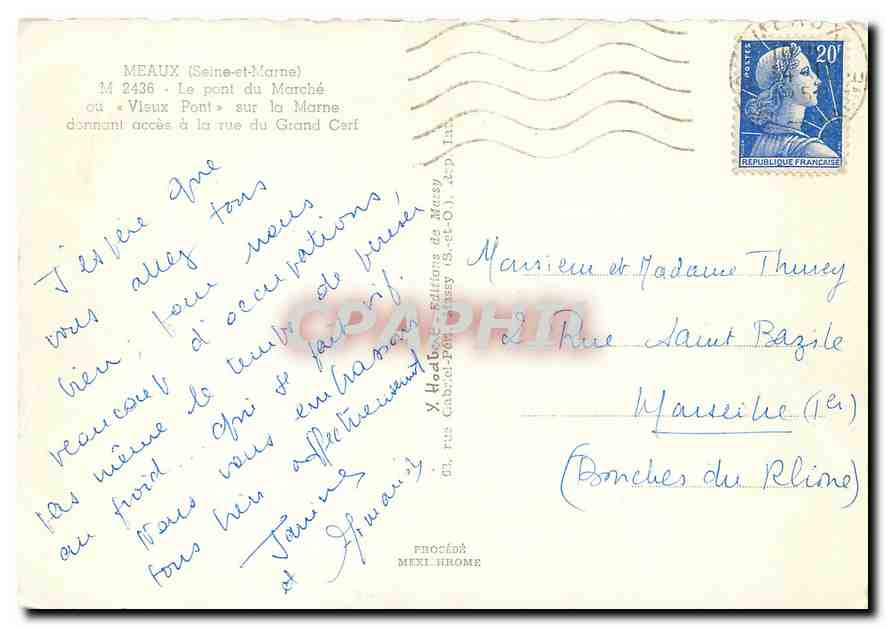 MEAUX (Seine-et-Marne)
M 2436 - Le pont du Marché
ou « Vieux Pont » sur la Marne
donnant accès à la rue du Grand Cerf
J'espère que
vous allez tous
bien, pour nous
beaucoup d'occupations,
pas même le temps de penser
au froid... qui se fait vif.
Nous vous embrassons
tous bien affectueusement
Janine
et
POSTES
20F
REPUBLIQUE FRANÇAISE
Editions de Massy
63, rue Gabriel-Péri, Massy (S.-et-O.). Rep. Int.
CPAPHIL
Monsieur et Madame Thurey
2 Rue Saint Bazile
Marseille (1er)
(Bouches du Rhône)
PROCÉDÉ
MEXICHROME